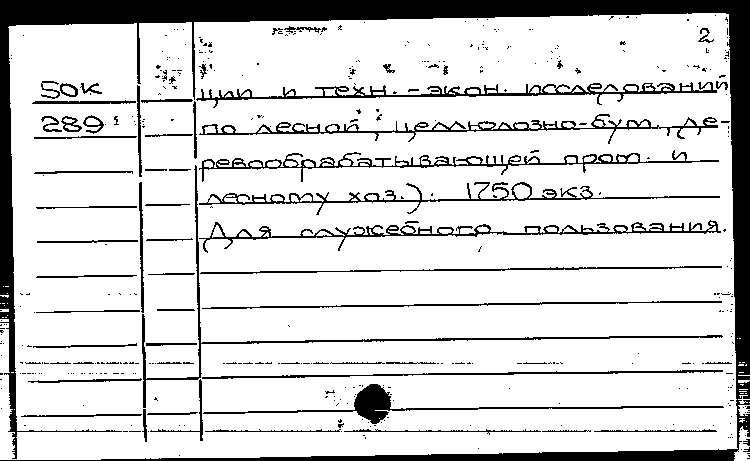 2
50К ции и техн. - экон. исследований
289 по лесной, целлюлозно-бум., де-
ревообрабатывающей пром. и
лесному хоз.). 1750 экз.
Для служебного пользования.